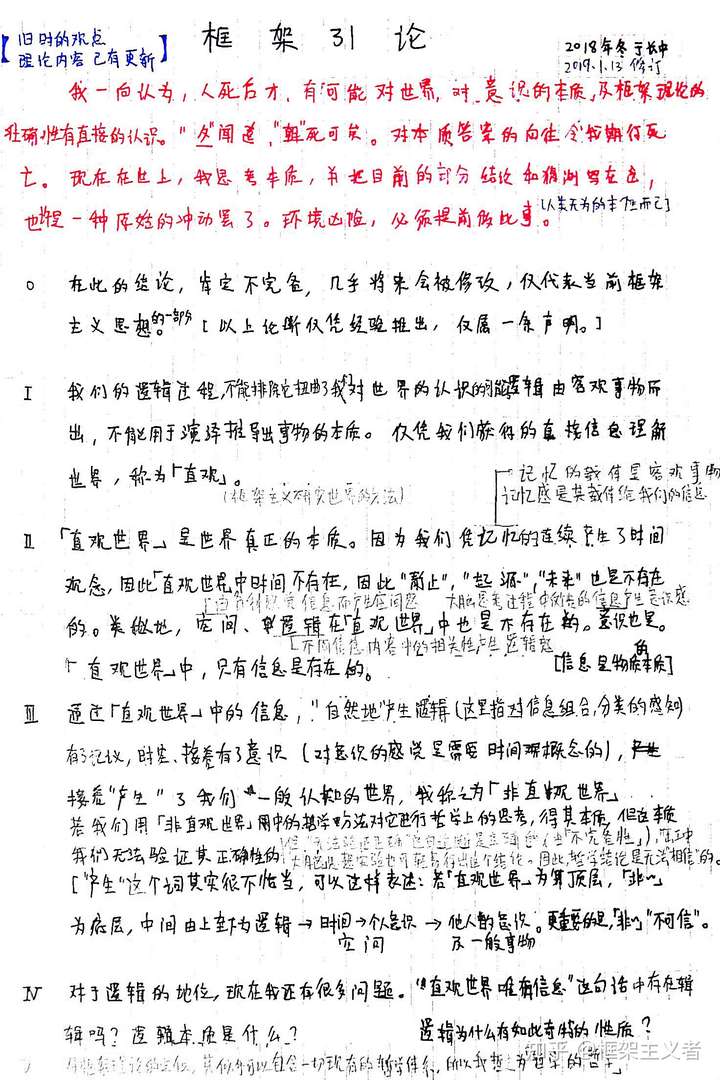 【旧时的观点
理论内容已有更新】
框架引论
2018年冬于长中
2019.1.13 修订
我一向认为，人死后才有可能对世界，对意识的本质及框架理论的
正确性有直接的认识。"夕"闻道，"朝"死可矣。对本质答案的向往令我期待死
亡。现在在世上，我思考本质，并把目前的部分结论和猜测写在这，
也许是一种原始的冲动罢了。环境凶险，必须提前做此事。
[人类无为的本性而已]
0 在此的结论，肯定不完备，几乎将来会被修改，仅代表当前框架
主义思想的一部分。[以上论断仅凭经验推出，仅属一条声明。]
I 我们的逻辑过程，不能排除它扭曲了我们对世界的认识的可能逻辑由客观事物而
出，不能用于演绎推导出事物的本质。仅凭我们获得的直接信息理解
世界，称为「直观」。
(框架主义研究世界的方法)
记忆的载体是客观事物
记忆感是其载体给我们的信息
II 「直观世界」是世界真正的本质。因为我们凭记忆的连续产生了时间
观念，因此「直观世界」中时间不存在，因此"静止"，"起源"，"未来"也是不存在
信息而产生空间感 大脑思考过程中 的信息产生意识感
的。类似地，空间、逻辑在「直观世界」中也是不存在的。意识也是。
[不同信息内容中的相关性产生逻辑感
「直观世界」中，只有信息是存在的。
[信息是物质的本质]
III 通过「直观世界」中的信息，"自然地"产生逻辑（这里指对信息组合，分类的感知）
有了记忆，时空、接着有了意识（对意识的感觉是需要时间观概念的），
接着"产生"了我们一般认知的世界，我称之为「非直观世界」
若我们用「非直观世界」中的哲学方法对它进行哲学上的思考，得其本质，但这本质
我们无法验证其正确性的
因此，哲学结论是无法"相信"的。
["产生"这个词其实很不恰当，可以这样表达：若「直观世界」为算顶层，「非〃」
为底层，中间由上至下为逻辑→时间→个人意识→他人的意识。更重要的是，「非〃」"不可信"。
空间 及一般事物
IV 对于逻辑的地位，现在我还有很多问题。"直观世界唯有信息"这句话中存在逻
辑吗？逻辑本质是什么？ 逻辑为什么有如此奇特的性质？
知乎 @框架主义者